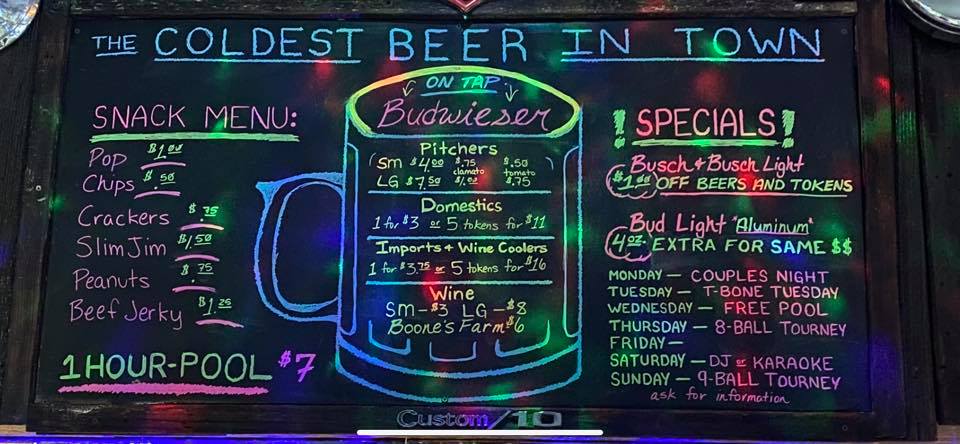 THE COLDEST BEER IN TOWN
SNACK MENU:
Pop $1.00
Chips $.50
Crackers $.75
Slim Jim $1.50
Peanuts $.75
Beef Jerky $1.25
1 HOUR-POOL $7
ON TAP
Budwieser
Pitchers
SM $4.00 $.75 $.50
clamato tomato
LG $7.50 $1.00 $.75
Domestics
1 for $3 or 5 tokens for $11
Imports + Wine Coolers
1 for $3.75 or 5 tokens for $16
Wine
SM-$3 LG-$8
Boone's Farm $6
! SPECIALS !
Busch & Busch Light
$1.00 OFF BEERS AND TOKENS
Bud Light "Aluminum"
4oz. EXTRA FOR SAME $$
MONDAY — COUPLES NIGHT
TUESDAY — T-BONE TUESDAY
WEDNESDAY — FREE POOL
THURSDAY — 8-BALL TOURNEY
FRIDAY —
SATURDAY — DJ or KARAOKE
SUNDAY — 9-BALL TOURNEY
ask for information
Custom/10